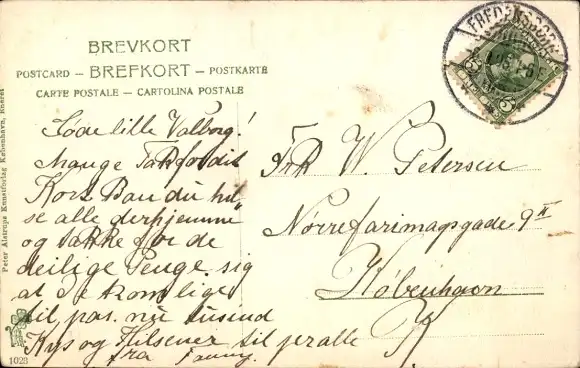 BREVKORT
POSTCARD — BREFKORT — POSTKARTE
CARTE POSTALE — CARTOLINA POSTALE
Søde lille Valborg!
mange Tak for dit
Kort Kan du hil-
se alle derhjemme
og takke for de
deilige Penge. sig
at de kom lige
til pas. nu tusend
Kys og Hilsener til jer alle
fra Fanny.
Frk W. Petersen
Nørrefarimagsgade 9 II
København
K
FREDENSBORG
5
5
Peter Alstrups Kunstforlag København, Eneret
1023